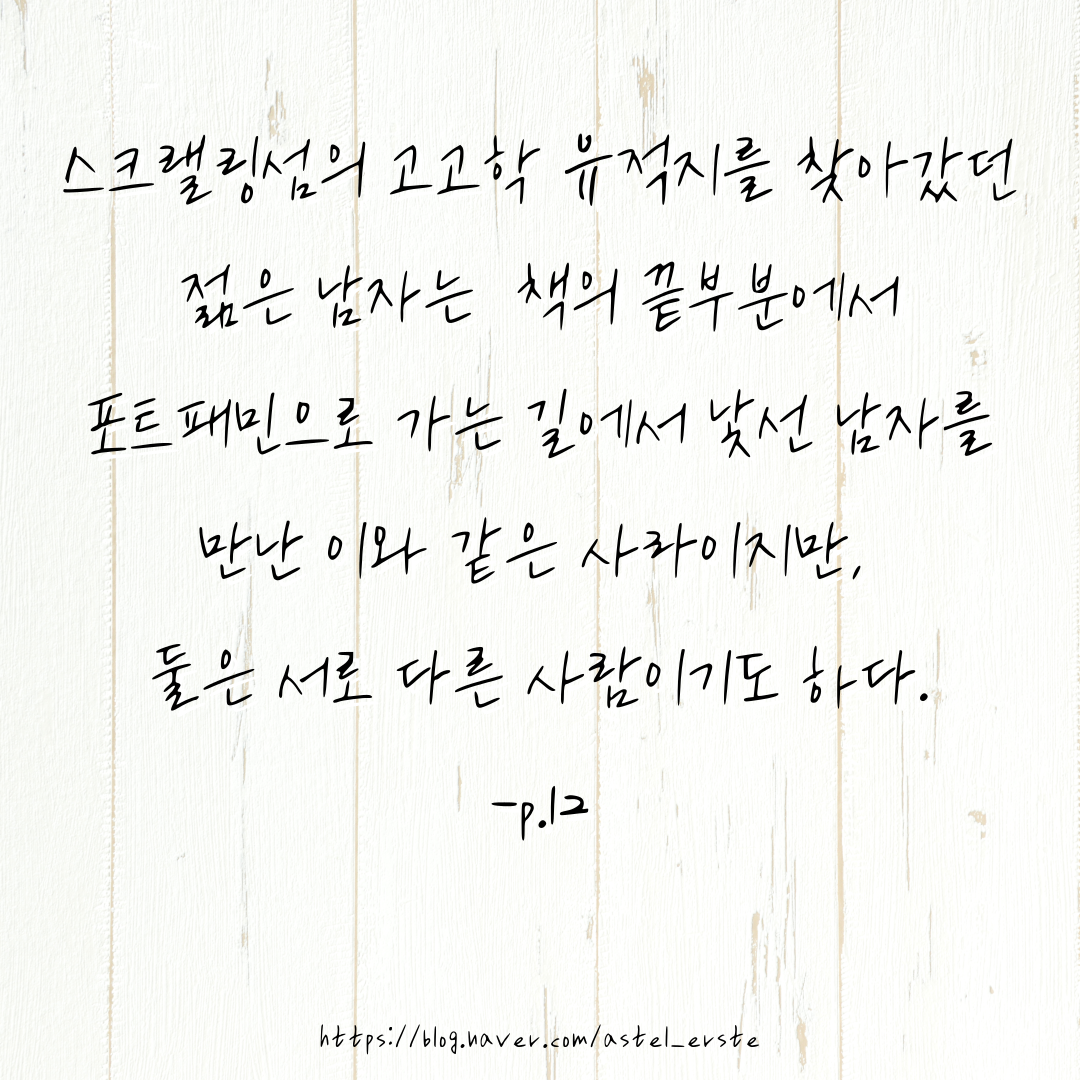 스크랠링섬의 고고학 유적지를 찾아갔던
젊은 남자는 책의 끝부분에서
포트패민으로 가는 길에서 낯선 남자를
만난 이와 같은 사라이지만,
둘은 서로 다른 사람이기도 하다.
-p.12
https://blog.naver.com/astel_erste